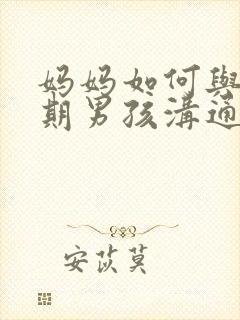 妈妈如何與
期男孩溝通
安苡莫